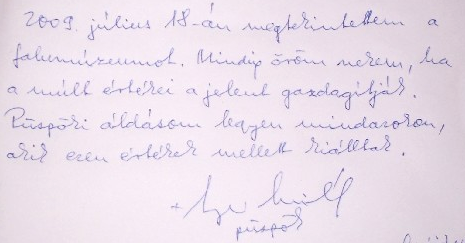 2009. július 18-án megtekintettem a
falumúzeumot. Mindig öröm nekem, ha
a múlt értékei a jelent gazdagítják.
Püspöki áldásom legyen mindazokon,
akik ezen értékek mellett kiálltak.
+
püspök